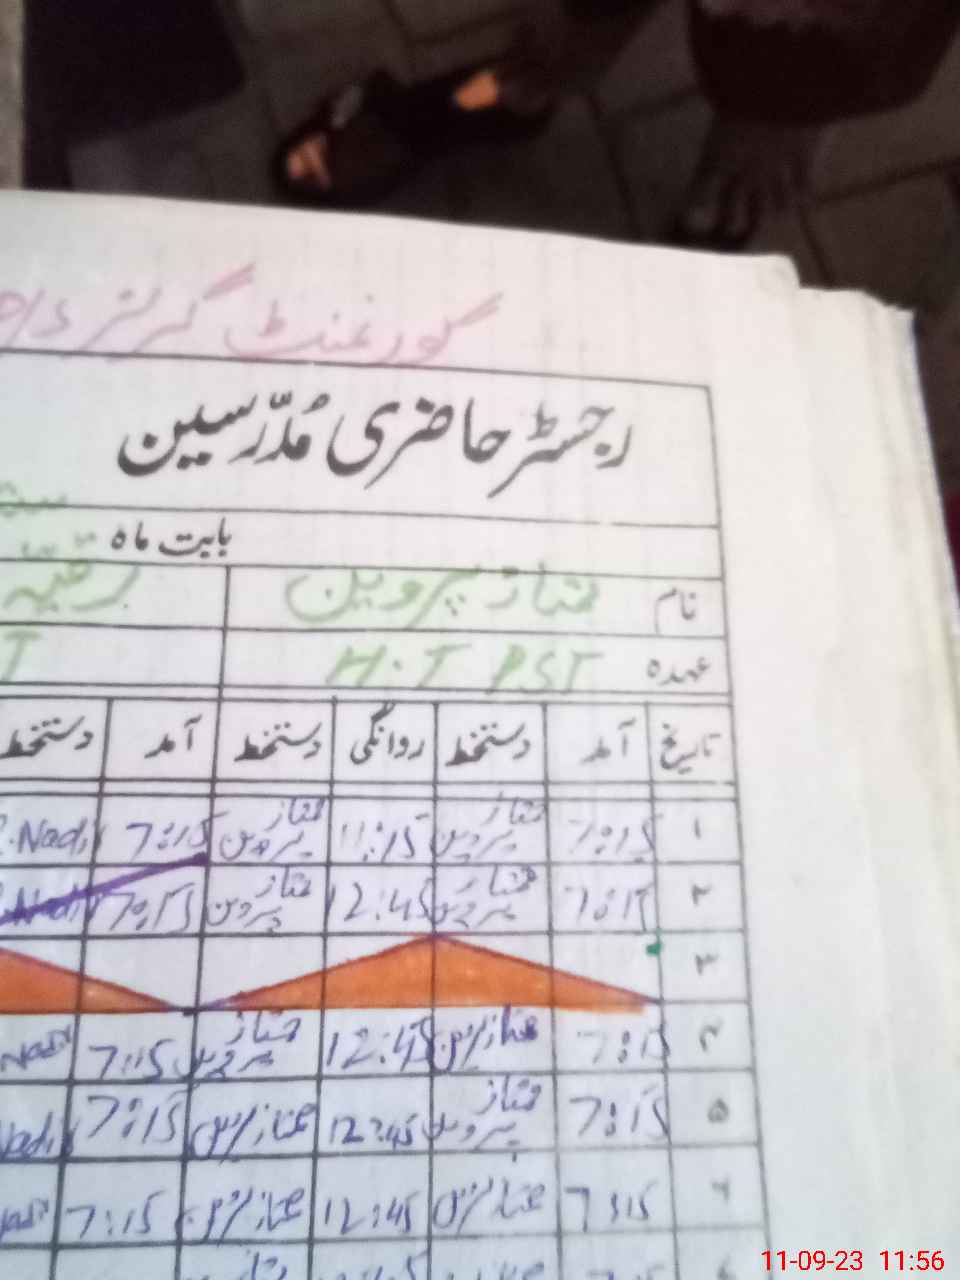 گورنمنٹ گرلز
رجسٹر حاضری مُدرّسین
بابت ماہ
نام ممتاز پروین رقیہ
عہدہ H.T PST T
تاریخ آمد دستخط روانگی دستخط آمد دستخط
۱ 7:15 ممتاز پروین 11:15 ممتاز پروین 7:15 Nadi
۲ 7:15 ممتاز پروین 12:45 ممتاز پروین 7:15 Nadi
۳
۴ 7:15 ممتاز پروین 12:45 ممتاز پروین 7:15
۵ 7:15 ممتاز پروین 12:45 ممتاز پروین 7:15 Nadi
۶ 7:15 ممتاز پروین 12:45 ممتاز پروین 7:15
11-09-23 11:56